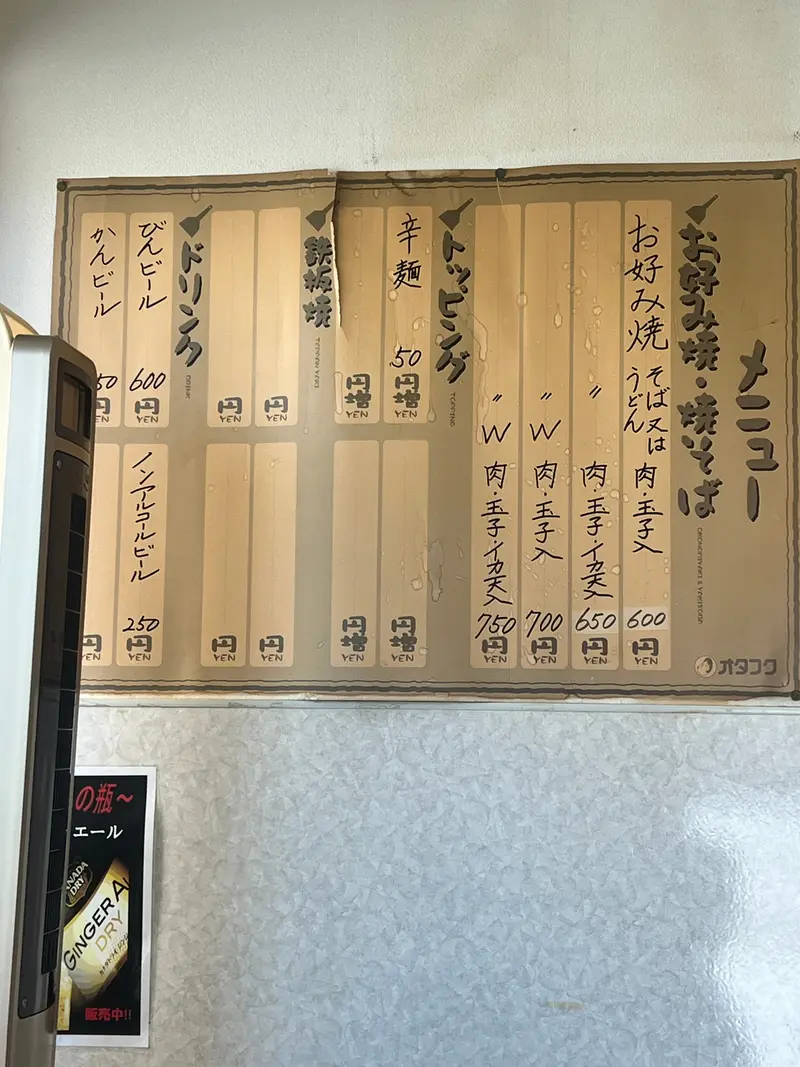 メニュー
お好み焼・焼そば
OKONOMIYAKI & YAKISOBA
お好み焼 そば又はうどん 肉・玉子入 600円 YEN
〃 肉・玉子・イカ天入 650円 YEN
〃 W 肉・玉子入 700円 YEN
〃 W 肉・玉子・イカ天入 750円 YEN
オタフク
トッピング
TOPPING
辛麺 50円増 YEN
円増 YEN
円増 YEN
円増 YEN
鉄板焼
TEPPAN YAKI
円 YEN
円 YEN
円 YEN
円 YEN
ドリンク
DRINK
びんビール 600円 YEN
かんビール 50円 YEN
ノンアルコールビール 250円 YEN
円 YEN
の瓶～
エール
CANADA DRY
GINGER A
DRY
販売中!!